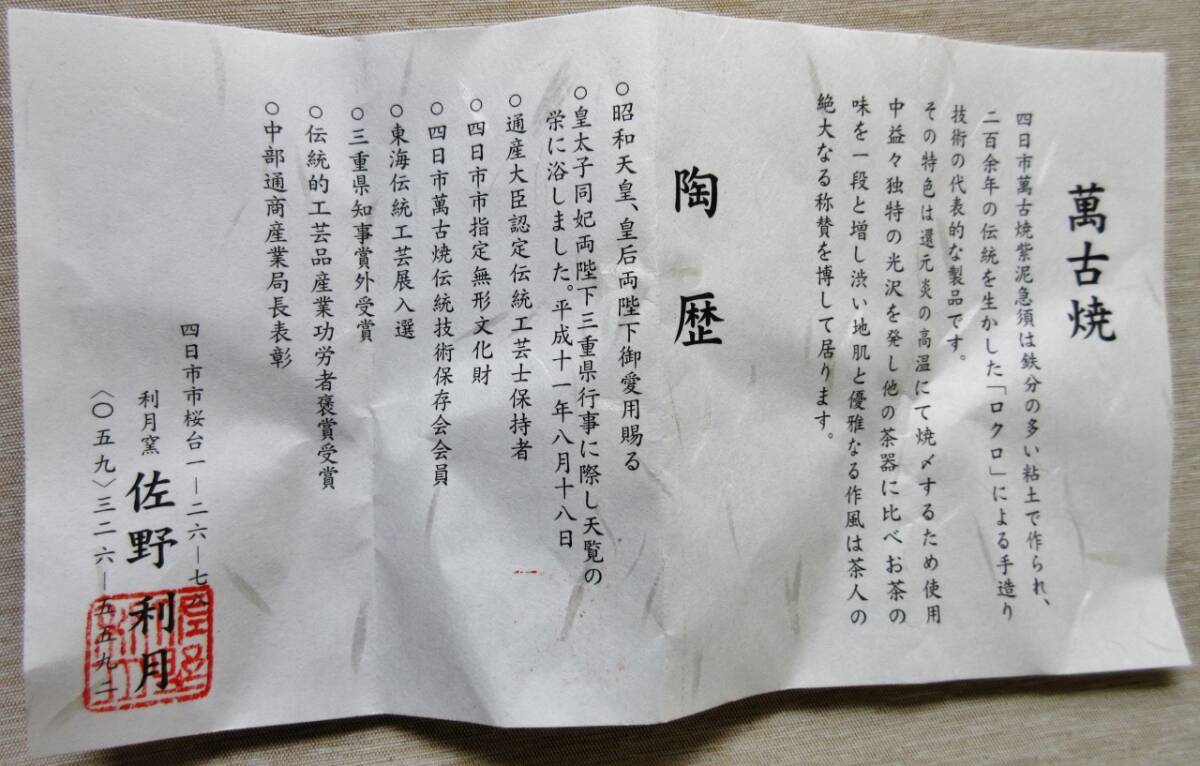 萬古焼
四日市萬古焼紫泥急須は鉄分の多い粘土で作られ、
二百余年の伝統を生かした「ロクロ」による手造り
技術の代表的な製品です。
その特色は還元炎の高温にて焼〆するため使用
中益々独特の光沢を発し他の茶器に比べお茶の
味を一段と増し渋い地肌と優雅なる作風は茶人の
絶大なる称賛を博して居ります。
陶歴
○昭和天皇、皇后両陛下御愛用賜る
○皇太子同妃両陛下三重県行事に際し天覧の
栄に浴しました。平成十一年八月十八日
○通産大臣認定伝統工芸士保持者
○四日市市指定無形文化財
○四日市萬古焼伝統技術保存会会員
○東海伝統工芸展入選
○三重県知事賞外受賞
○伝統的工芸品産業功労者褒賞受賞
○中部通商産業局長表彰
四日市市桜台一ー二六ー七
利月窯 佐野利月
〈〇五九〉三二六ー五五九二